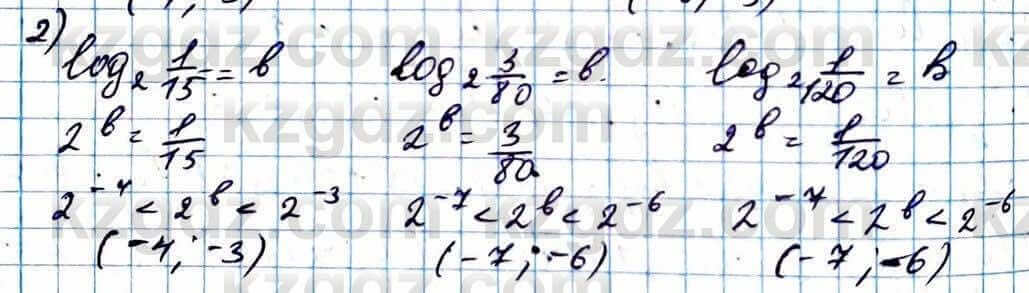 2)
log₂ 1/15 = b    log₂ 3/80 = b.    log₂ 1/120 = b
2^b = 1/15    2^b = 3/80    2^b = 1/120
2^-4 < 2^b < 2^-3    2^-7 < 2^b < 2^-6    2^-7 < 2^b < 2^-6
(-4; -3)    (-7; -6)    (-7; -6)
kzgdz.com